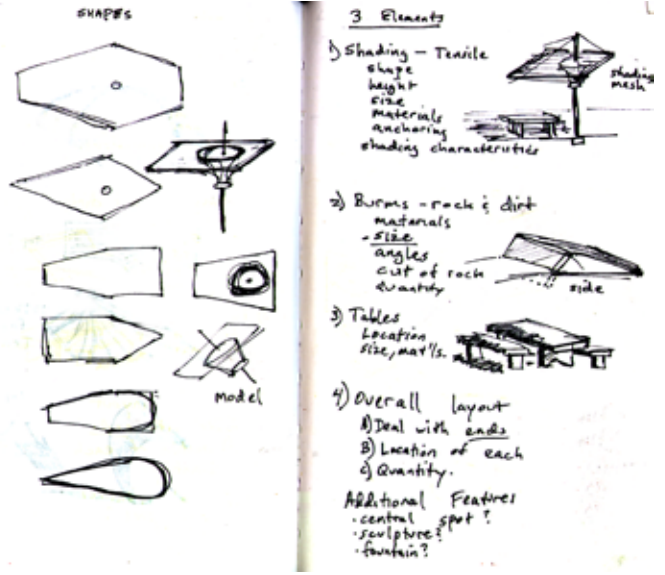 SHAPES
model
3 Elements
1) Shading - Tensile
shape
height
size
materials
anchoring
shading characteristics
shading
mesh
2) Burms - rock & dirt
materials
- size
angles
cut of rock
quantity
side
3) Tables
Location
size, mat'ls.
4) Overall layout
A) Deal with ends
B) Location of each
C) Quantity.
Additional Features
· central spot?
· sculpture?
· fountain?